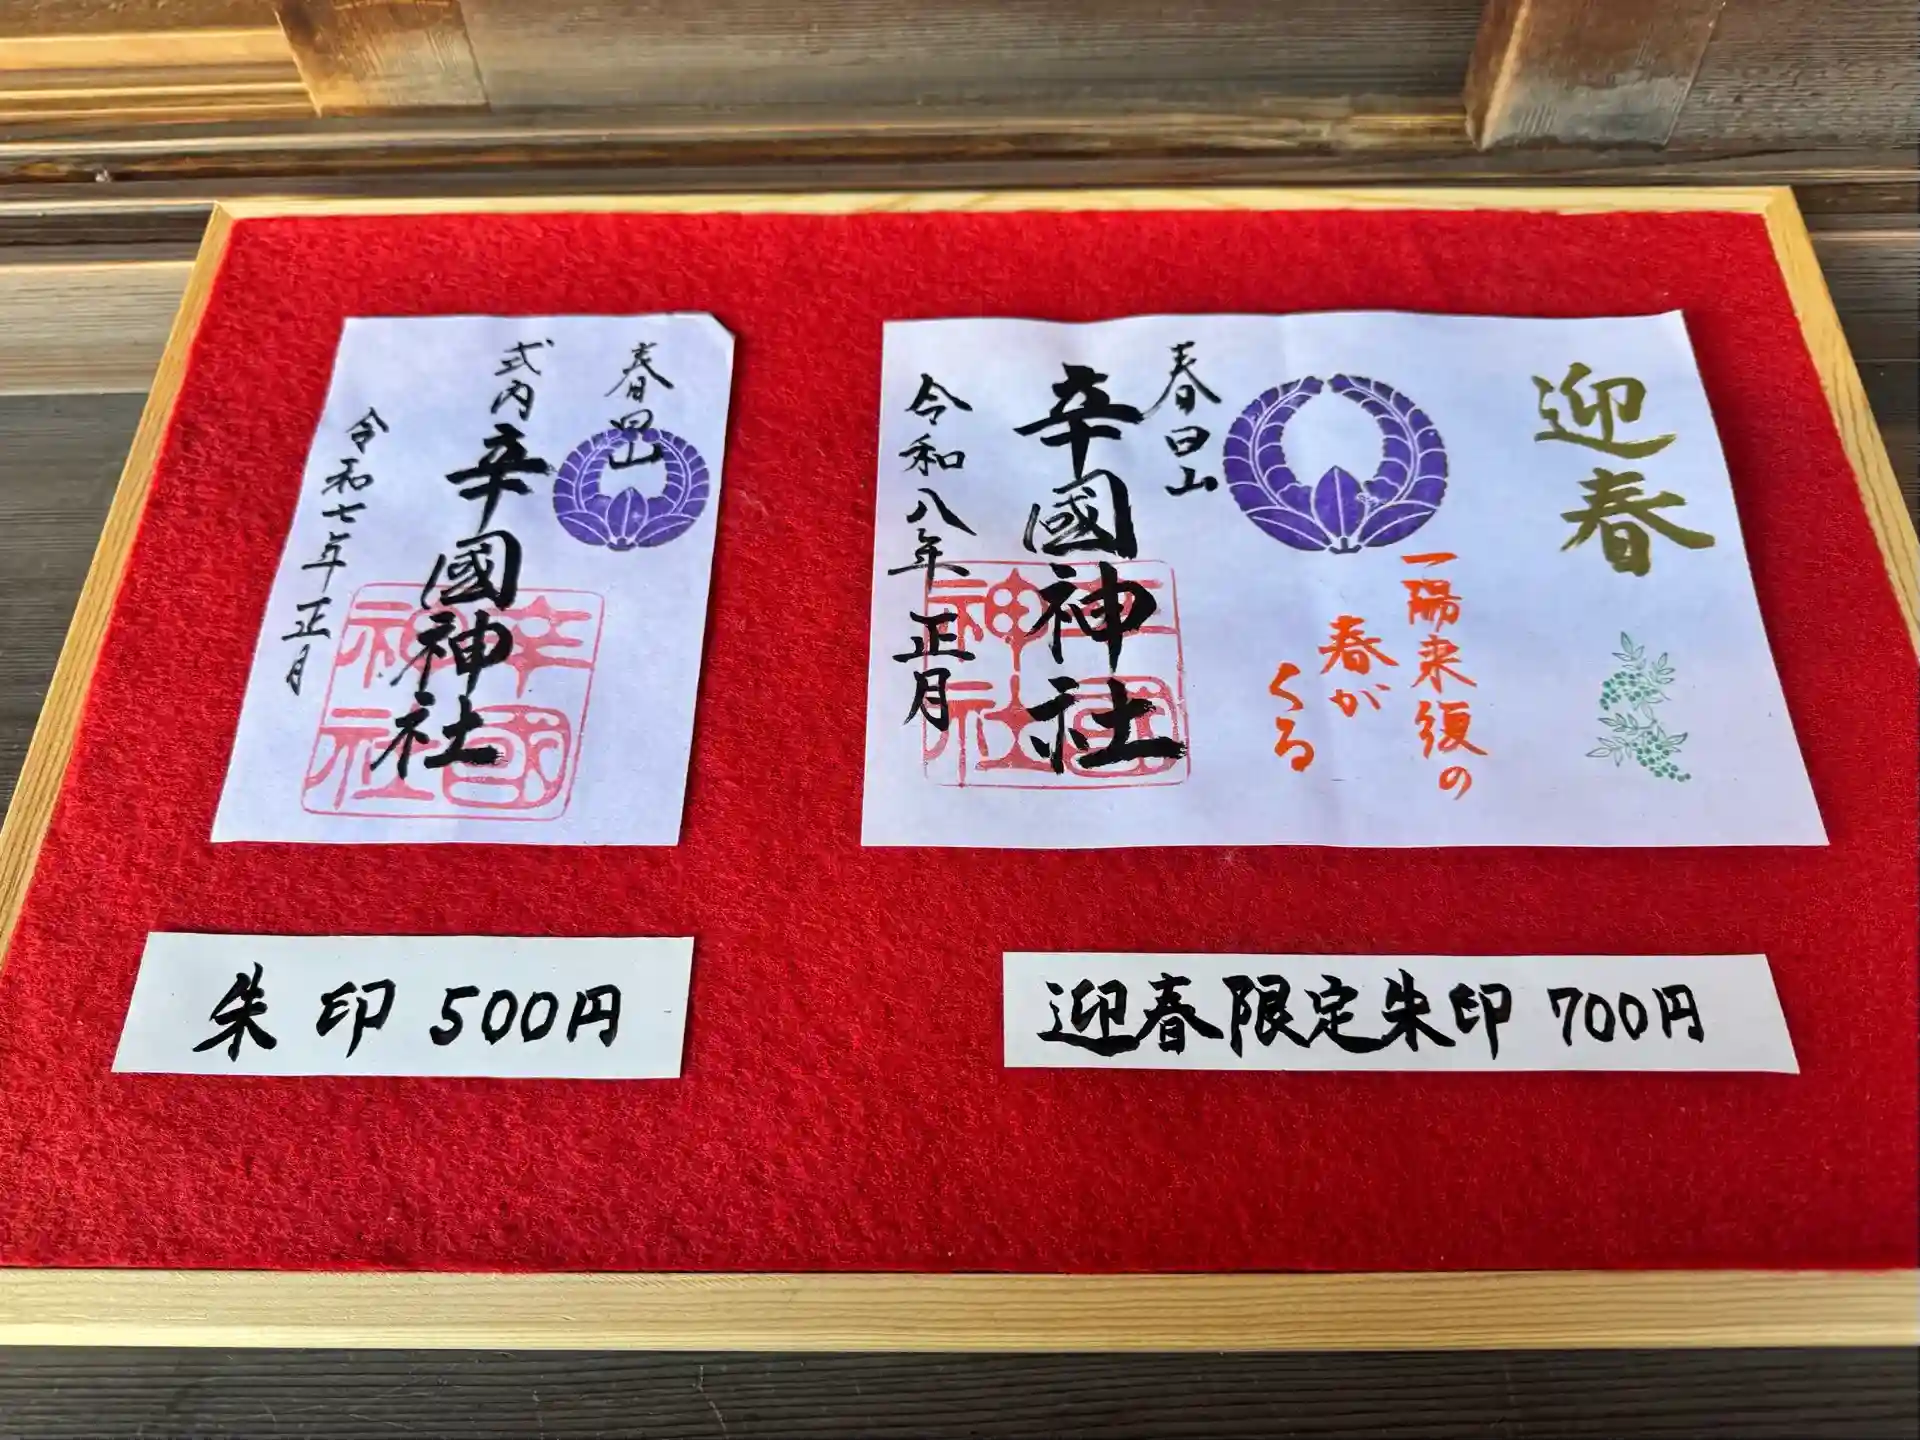 春日山
式内
辛國神社
令和七年正月
辛國神社
迎春
一陽来復の
春が
くる
春日山
辛國神社
令和八年正月
辛國神社
朱印 500円
迎春限定朱印 700円